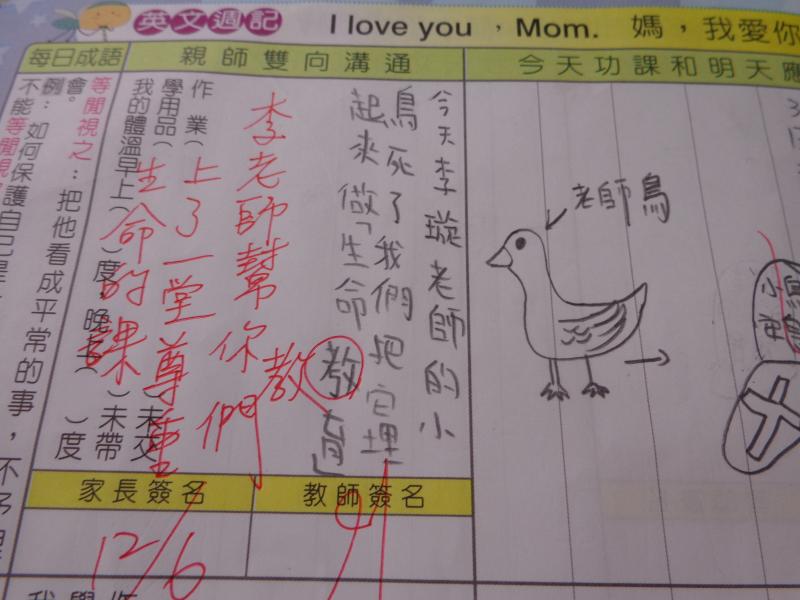 英文週記 I love you，Mom. 媽，我愛你
每日成語
親師雙向溝通
今天功課和明天應
今天李璇老師的小
鳥死了我們把它埋
起來做「生命教育」
教
李老師幫你們
上了一堂尊重
生命的課
作業（ ）未交
學用品（ ）未帶
我的體溫早上（ ）度，晚上（ ）度
等閒視之：把他看成平常的事，不予理
會。
例：如何保護自己是
不能等閒視
老師鳥
家長簽名
教師簽名
12/6
作
學
我